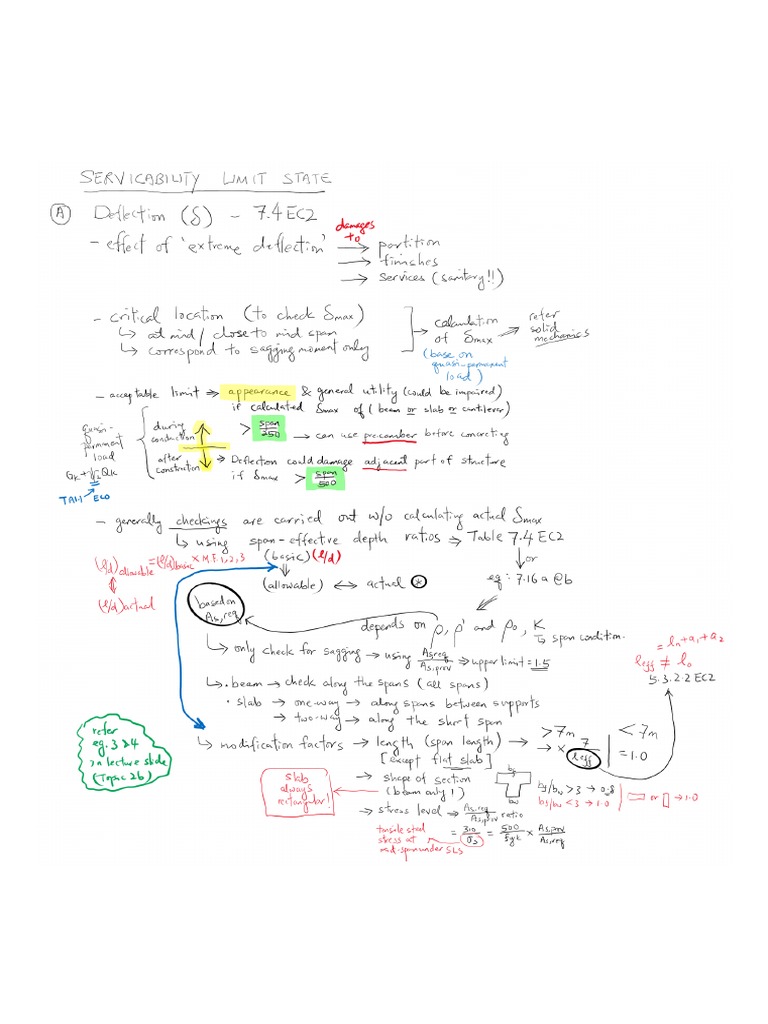 SERVICABILITY LIMIT STATE
Ⓐ Deflection (δ) ~ 7.4 EC2
- effect of 'extreme deflection' damages to → partition
→ finishes
→ services (sanitary!!)
- critical location (to check δmax)
↳ at mind / close to mind span
↳ correspond to sagging moment only
→ calculation of δmax → refer solid mechanics
(base on quasi-permanent load)
- acceptable limit ⇒ appearance & general utility (could be impaired)
if calculated δmax of (beam or slab or cantilever)
during construction ↑ > span/250 → can use precamber before concreting
after construction ↓ ⇒ Deflection could damage adjacent part of structure
if δmax > span/500
quasi-permanent load
Gk + ψ2 Qk
TA1.1 EC0
- generally checkings are carried out w/o calculating actual δmax
↳ using span-effective depth ratios ⇒ Table 7.4 EC2
(basic) (l/d)
or
eq: 7.16 a @ b
(l/d)allowable = (l/d)basic × M.F. 1, 2, 3
↕
(l/d)actual
⇓
(allowable) ↔ actual ⊛
based on As,req
depends on ρ, ρ' and ρo, K
↳ span condition.
↳ only check for sagging → using As,req/As,prov ⇒ upper limit = 1.5
↳ • beam → check along the spans (all spans)
• slab → one-way → along spans between supports
→ two-way → along the short span
= ln + a1 + a2
leff ≠ lo
5.3.2.2 EC2
↳ modification factors → length (span length) → >7m → × 7/leff | <7m = 1.0
[except flat slab]
→ shape of section
(beam only!)
bf
bw
bf/bw > 3 → 0.8
bf/bw < 3 → 1.0
▭ or ▯ → 1.0
slab always rectangular!
→ stress level → As,req/As,prov ratio
= 310/σs = 500/fyk × As,prov/As,req
tensile steel
stress at
mid-span under SLS
refer
eg. 3 & 4
in lecture slide
(Topic 2b)